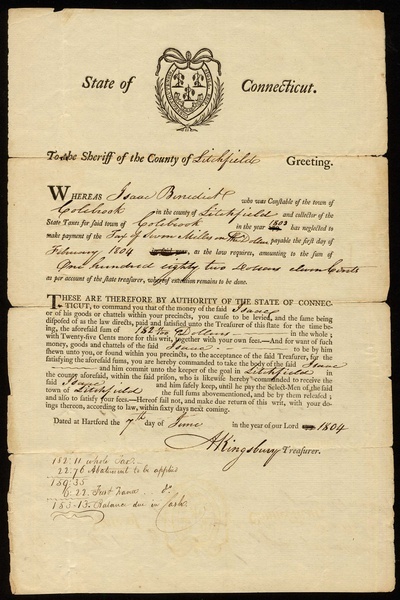 State of Connecticut.
To the Sheriff of the County of Litchfield Greeting.
WHEREAS Isaac Benedict who was Constable of the town of
Colebrook in the county of Litchfield and collector of the
State Taxes for said town of Colebrook in the year 1803 has neglected to
make payment of the Tax of Seven Mills on the Dollar, payable the first day of
February 1804 as the law requires, amounting to the sum of
One hundred eighty two eleven Cents
as per account of the state treasurer, whereof execution remains to be done.
THESE ARE THEREFORE BY AUTHORITY OF THE STATE OF CONNEC-
TICUT, to command you that of the money of the said Isaac
or of his goods or chattels within your precincts, you cause to be levied, and the same being
disposed of as the law directs, paid and satisfied unto the Treasurer of this State for the time be-
ing, the aforesaid sum of 182 Dollars in the whole ;
with Twenty-five Cents more for this writ, together with your own fees.—And for want of such
money, goods and chattels of the said Isaac to be by him
shewn unto you, or found within your precincts, to the acceptance of the said Treasurer, for the
satisfying the aforesaid sums, you are hereby commanded to take the body of the said Isaac
and him commit unto the keeper of the goal in Litchfield
the county aforesaid, within the said prison, who is likewise hereby commanded to receive the
said Isaac and him safely keep, until he pay the Select-Men of the said
town of Litchfield the full sums abovementioned, and be by them released ;
and also to satisfy your fees.—Hereof fail not, and make due return of this writ, with your do-
ings thereon, according to law, within sixty days next coming.
Dated at Hartford the 7th day of June in the year of our Lord 1804
AKingsbury Treasurer.
182.11 whole Tax
22.76 Abatement to be applied
6.22
Balance due in Cash